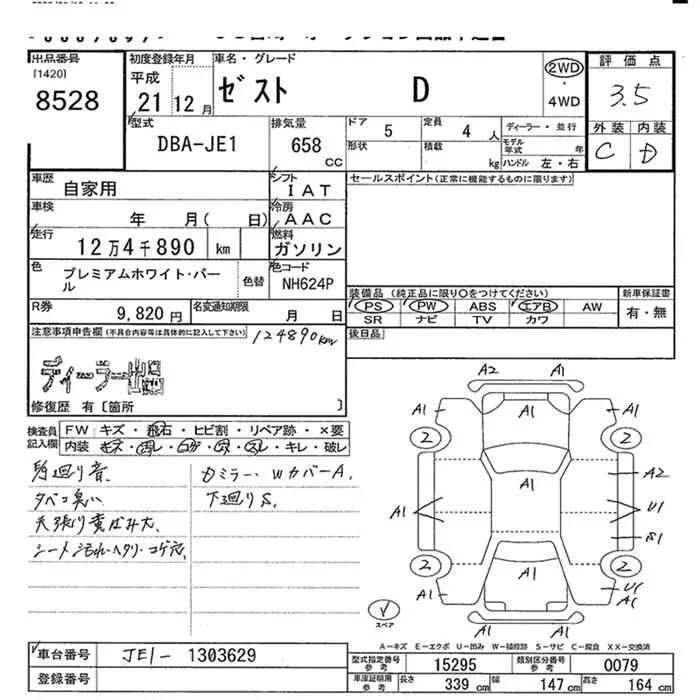 出品番号
[1420]
8528
初度登録年月
平成
21 12 月
車名・グレード
ゼスト D
2WD
・
4WD
評価点
3.5
外装 内装
C D
型式
DBA-JE1
排気量
658
CC
ドア 5
定員 4 人
ディーラー・並行
形状
積載
kg
モデル年式 年
ハンドル 左・右
車歴
自家用
シフト
IAT
セールスポイント(正常に機能するものに限ります)
車検
年 月( 日)
冷房
AAC
走行
12万4千890 km
燃料
ガソリン
色
プレミアムホワイト・パール
色替
色コード
NH624P
装備品 (純正品に限り○をつけてください)
新車保証書
PS PW ABS エアB AW
SR ナビ TV カワ
有・無
R券
9,820 円
名変通知期限
月 日
後日品
注意事項申告欄(不具合内容等は具体的に記入して下さい)
124890km
ディーラー出品
修復歴 有〔箇所 〕
検査員記入欄
FW キズ・飛石・ヒビ割・リペア跡・×要
内装 ・キレ・破レ
タバコ臭い
天張り黄ばみ大、
シート汚れ・ヘタリ・コゲ穴、
ドミラー、WカバーA、
下廻りS、
A2 A1
A1 A1 A1
2 2
A1 A2
A1 U1
S1
2 2
A1 A1 U1
A1
A1
スペア
A-キズ E-エクボ U-凹み W-補修跡 S-サビ C-腐食 XX-交換済
車台番号
JE1- 1303629
登録番号
型式指定番号
参考
15295
類別区分番号
参考
0079
車庫証明用
参考
長さ 339 cm
幅 147 cm
高さ 164 cm